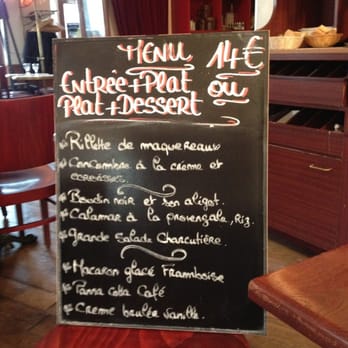 MENU 14€
ENTRÉE+PLAT OU
PLAT+DESSERT
Rillette de maquereaux
Concombre à la crème et
Boudin noir et son aligot.
Calamar à la provençale, Riz.
Grande Salade Charcutière.
Macaron glacé Framboise
Panna cotta Café
Creme brulée Vanille.